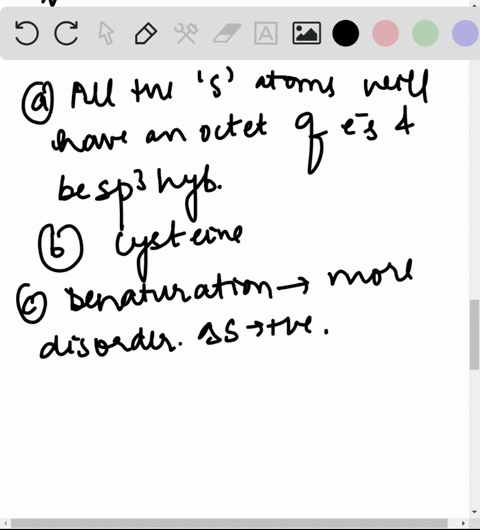 ⓐ All the 's' atoms will
have an octet of e⁻s &
be sp³ hyb.
ⓑ Cysteine
ⓒ Denaturation → more
disorder. ΔS → +ve.